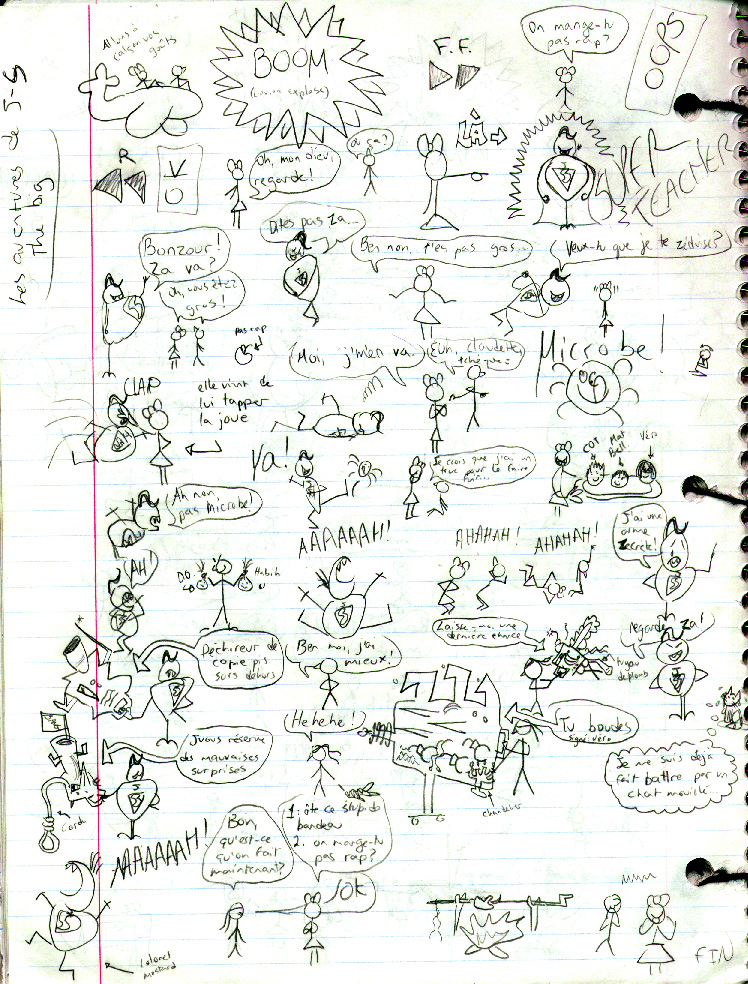 Les aventures de J-S
The big
Allons à
BOOM
F.F.
On mange-tu
pas rap?
OOPS
R
V
O
Oh, mon dieu,
regarde!
où ça?
LÀ
SUPER
TEACHER
Bonzour!
Za va?
Oh, vous êtez
gros!
pas cap
Dites pas za...
Ben non, t'es pas gros...
Veux-tu que je te zéduise?
CLAP
elle vient de
lui tapper
la joue
Moi, j'm'en va.
Euh, claudette,
Microbe!
Va!
Je crois que j'ai un
truc pour le faire
COT
Mat
Bell
Véro
Ah non,
pas Microbe!
AAAAAAH!
AHAHAH!
AHAHAH!
J'ai une
arme
zecrète!
AH!
D.O.
Hubich
Déchireur de
copie pis
surs dehors
Ben moi, j'ai
mieux!
Laisse-moi une
dernière chance
regarde za!
tuyau
de plomb
Hehehe!
Tu boudes
signé: véro
chandelier
Je me suis déjà
fait battre par un
chat mouillé...
J'vous réserve
des mauvaises
surprises
Corde
AAAAAAH!
Bon,
qu'est-ce
qu'on fait
maintenant?
1: ôte ce stupide
bandeau
2. on mange-tu
pas rap?
OK
Colonel
Moutard
FIN